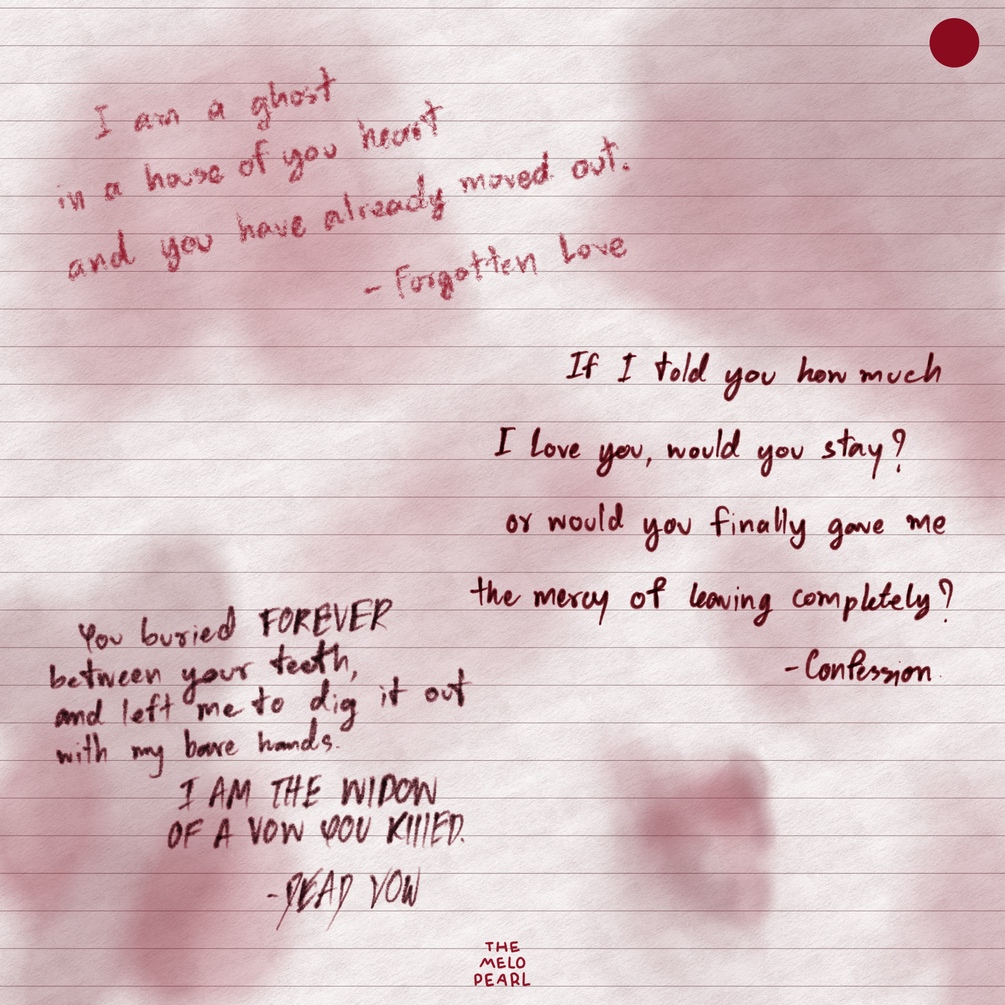 I am a ghost
in a house of you heart
and you have already moved out.
- Forgotten Love
If I told you how much
I love you, would you stay?
or would you finally gave me
the mercy of leaving completely?
- Confession.
You buried FOREVER
between your teeth,
and left me to dig it out
with my bare hands.
I AM THE WIDOW
OF A VOW YOU KIllED.
- DEAD VOW
THE
MELO
PEARL